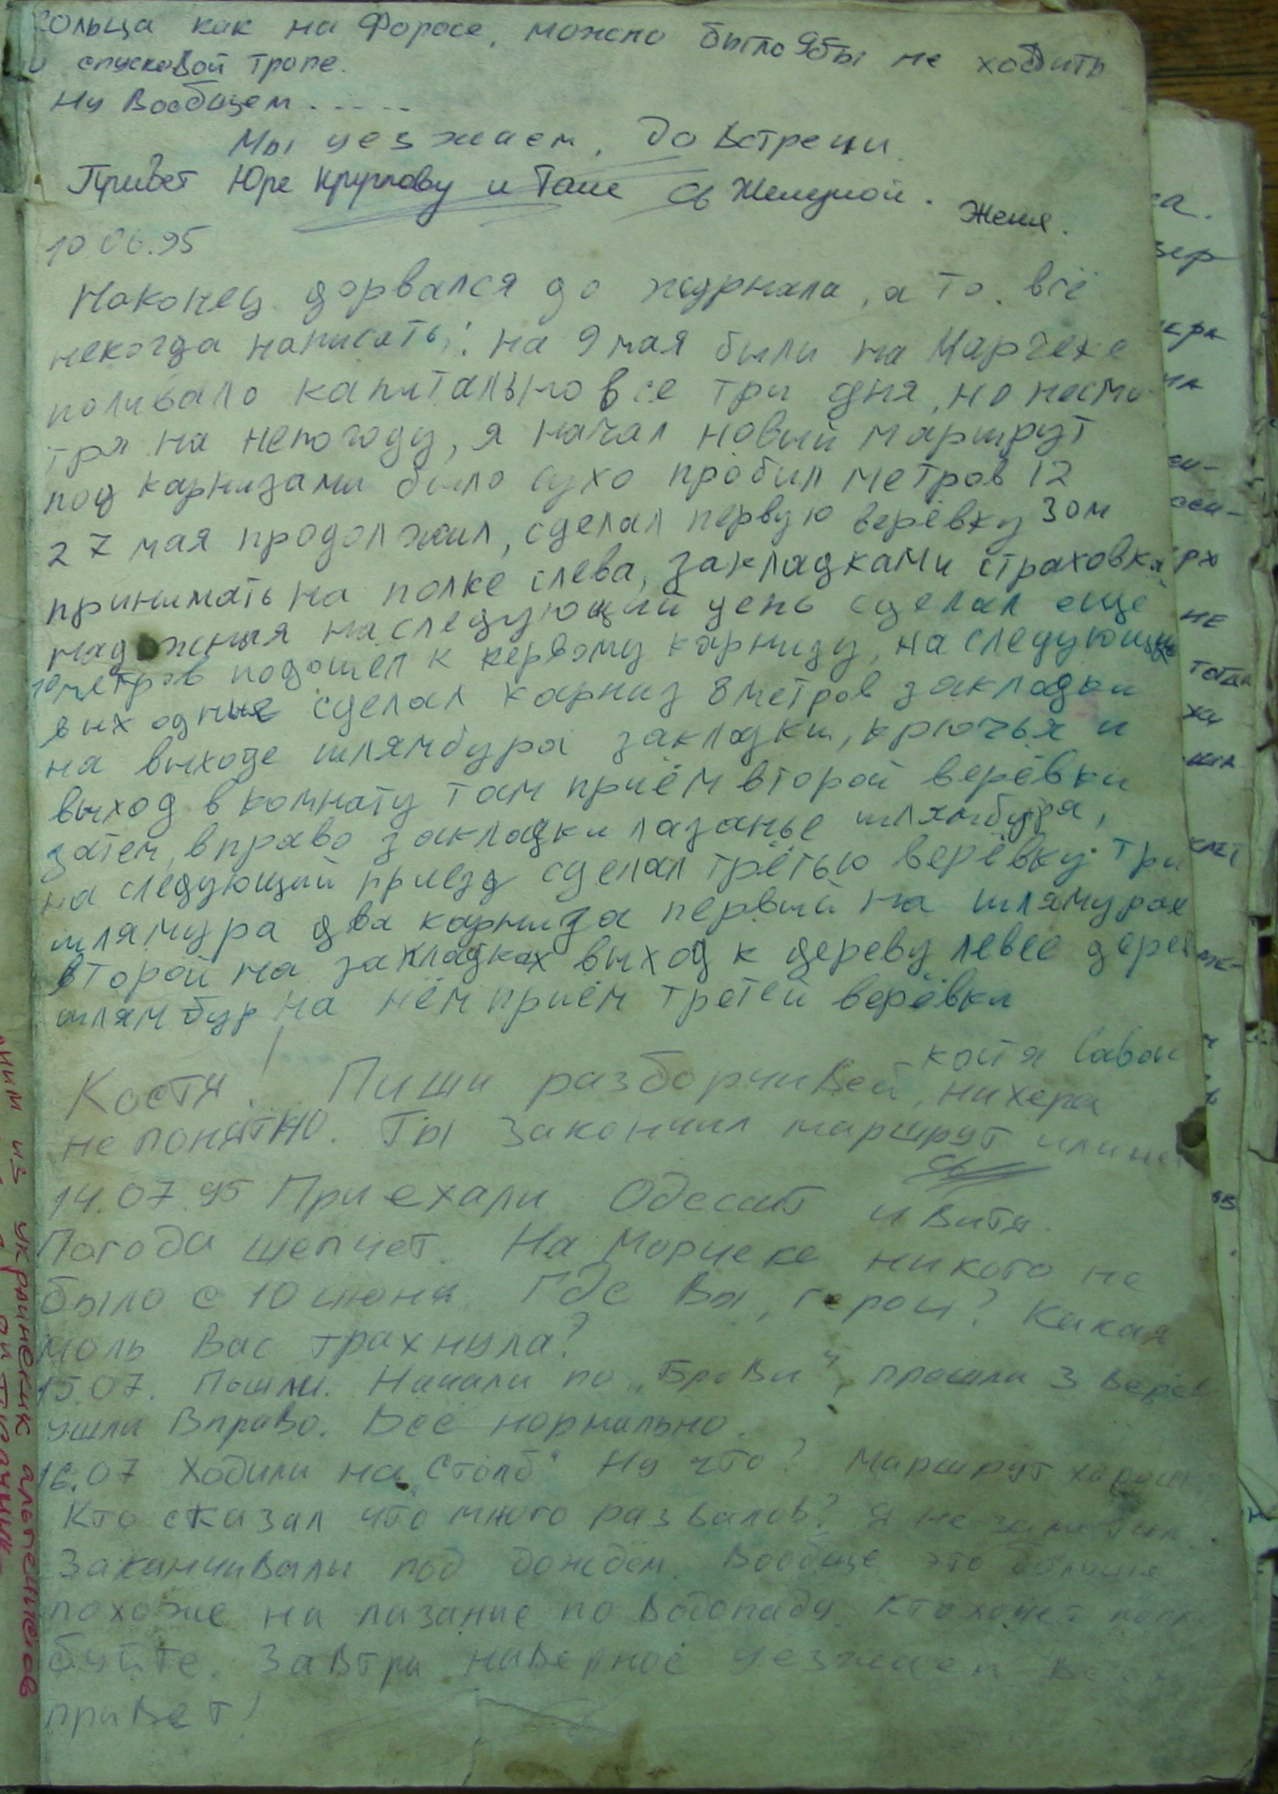 кольца как на Форосе, можно было бы не ходить
спусковой тропе.
Ну Вообщем......
Мы уезжаем, До Встречи.
Привет Юре Круглову и Тане Желудной. Женя.
10.06.95
Наконец дорвался до журнала, а то всё
некогда написать: на 9 мая были на Марчеке
поливало капитально все три дня, но несмо
тря на непогоду, я начал новый маршрут
под карнизами было сухо пробил метров 12
27 мая продолжил, сделал первую верёвку 30м
принимать на полке слева, закладками страховка
надёжная на следующий день сделал ещё
10 метров подошёл к первому карнизу, на следующие
выходные сделал карниз 8 метров закладки
на выходе шлямбура закладки, крючья и
выход в комнату там приём второй верёвки
затем вправо закладки лазанье шлямбура,
на следующий приезд сделал третью верёвку три
шлямура два карниза первый на шлямурах
второй на закладках выход к дереву левее
шлямбур на нём приём третей верёвки
Костя! Пиши разборчивей, нихера
не понятно. Ты закончил маршрут или
14.07.95 Приехали Одессит и Витя.
Погода шепчет. На Марчеке никого не
было с 10 июня. Где Вы, герои? Какая
моль Вас трахнула?
15.07. Пошли. Начали по „Брови", прошли 3
ушли Вправо. Всё нормально.
16.07 Ходили на „Столб" Ну что? Маршрут
Кто сказал что много развалов? Я не
Заканчивали под дождём. Вообще это больше
похоже на лазание по Водопаду. Кто хочет
буйте. Завтра наверное уезжаем
привет!